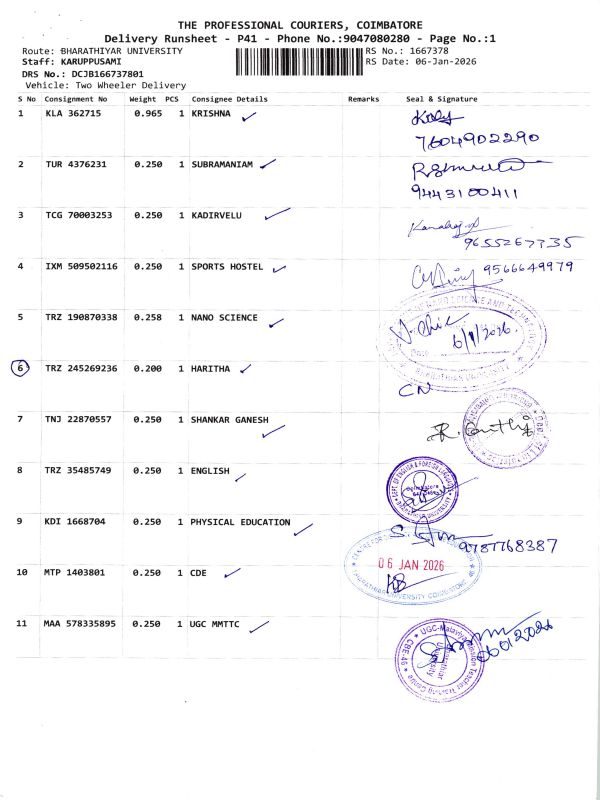 THE PROFESSIONAL COURIERS, COIMBATORE
Delivery Runsheet - P41 - Phone No.:9047080280 - Page No.:1
Route: BHARATHIYAR UNIVERSITY RS No.: 1667378
Staff: KARUPPUSAMI RS Date: 06-Jan-2026
DRS No.: DCJB166737801
Vehicle: Two Wheeler Delivery
S No Consignment No Weight PCS Consignee Details Remarks Seal & Signature
1 KLA 362715 0.965 1 KRISHNA
7604902290
2 TUR 4376231 0.250 1 SUBRAMANIAM
9443100411
3 TCG 70003253 0.250 1 KADIRVELU
9655267735
4 IXM 509502116 0.250 1 SPORTS HOSTEL 9566649979
5 TRZ 190870338 0.258 1 NANO SCIENCE
6/1/2026.
6 TRZ 245269236 0.200 1 HARITHA
CN
7 TNJ 22870557 0.250 1 SHANKAR GANESH
8 TRZ 35485749 0.250 1 ENGLISH
9 KDI 1668704 0.250 1 PHYSICAL EDUCATION
9787768387
06 JAN 2026
10 MTP 1403801 0.250 1 CDE
11 MAA 578335895 0.250 1 UGC MMTTC